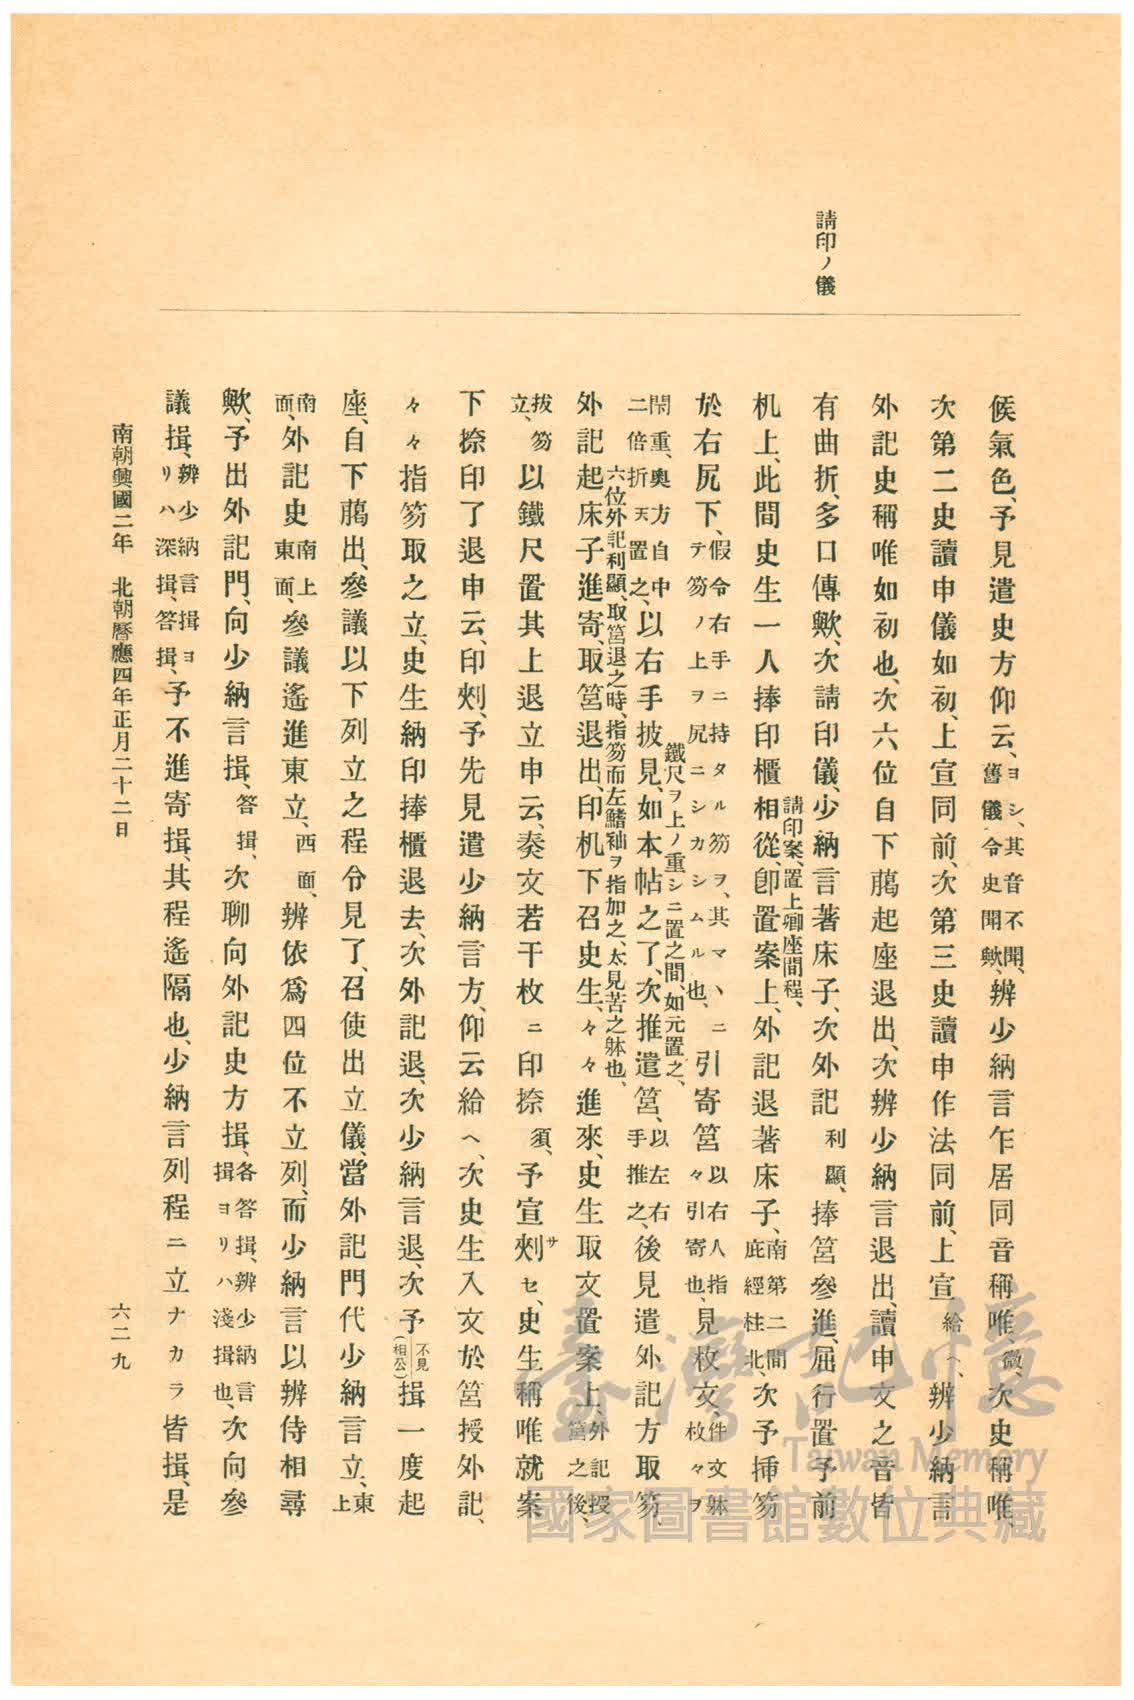 請印ノ儀
候氣色、予見遣史方仰云、ヨシ、其音不聞、舊儀令史聞歟、辨少納言乍居同音稱唯、微、次史稱唯、
次第二史讀申儀如初、上宣同前、次第三史讀申作法同前、上宣給ヘ、辨少納言
外記史稱唯如初也、次六位自下﨟起座退出、次辨少納言退出、讀申文之音皆
有曲折、多口傳歟、次請印儀、少納言著床子、次外記利顯、捧筥參進、屈行置予前
机上、此間史生一人捧印櫃相從、卽置案上、請印案、置上卿座間程、外記退著床子、南第二間庇經柱北、次予挿笏
於右尻下、假令右手ニ持タル笏ヲ、其マヽニテ笏ノ上ヲ尻ニシカシムル也、引寄筥以右人指々引寄也、見枚文件文躰枚々ヲ
閇重、奧方自中二倍折天置之、以右手披見、如本帖之了、鐵尺ヲ上ノ重シニ置之間、如元置之、次推遣筥、以左右手推之、後見遣外記方取笏、
外記起床子進寄、取筥退出、六位外記利顯、取筥退之時、指笏而左鰭袖ヲ指加之、太見苦之躰也、印机下召史生、々々進來、史生取文置案上、外記授筥之後、
拔笏立、以鐵尺置其上退立申云、奏文若干枚ニ印捺須、予宣刾サセ、史生稱唯就案
下捺印了退申云、印刾、予先見遣少納言方、仰云給ヘ、次史生入文於筥授外記、
々々指笏取之立、史生納印捧櫃退去、次外記退、次少納言退、次予(不見相公)揖一度起
座、自下﨟出、參議以下列立之程令見了、召使出立儀、當外記門代少納言立、東上
南面、外記史南上東面、參議遙進東立、西面、辨依爲四位不立列、而少納言以辨侍相尋
歟、予出外記門、向少納言揖、答揖、次聊向外記史方揖、各答揖、辨少納言揖ヨリハ淺揖也、次向參
議揖、辨少納言揖ヨリハ深揖、答揖、予不進寄揖、其程遙隔也、少納言列程ニ立ナカラ皆揖、是
南朝興國二年 北朝曆應四年正月二十二日
六二九
臺灣記憶
Taiwan Memory
國家圖書館數位典藏